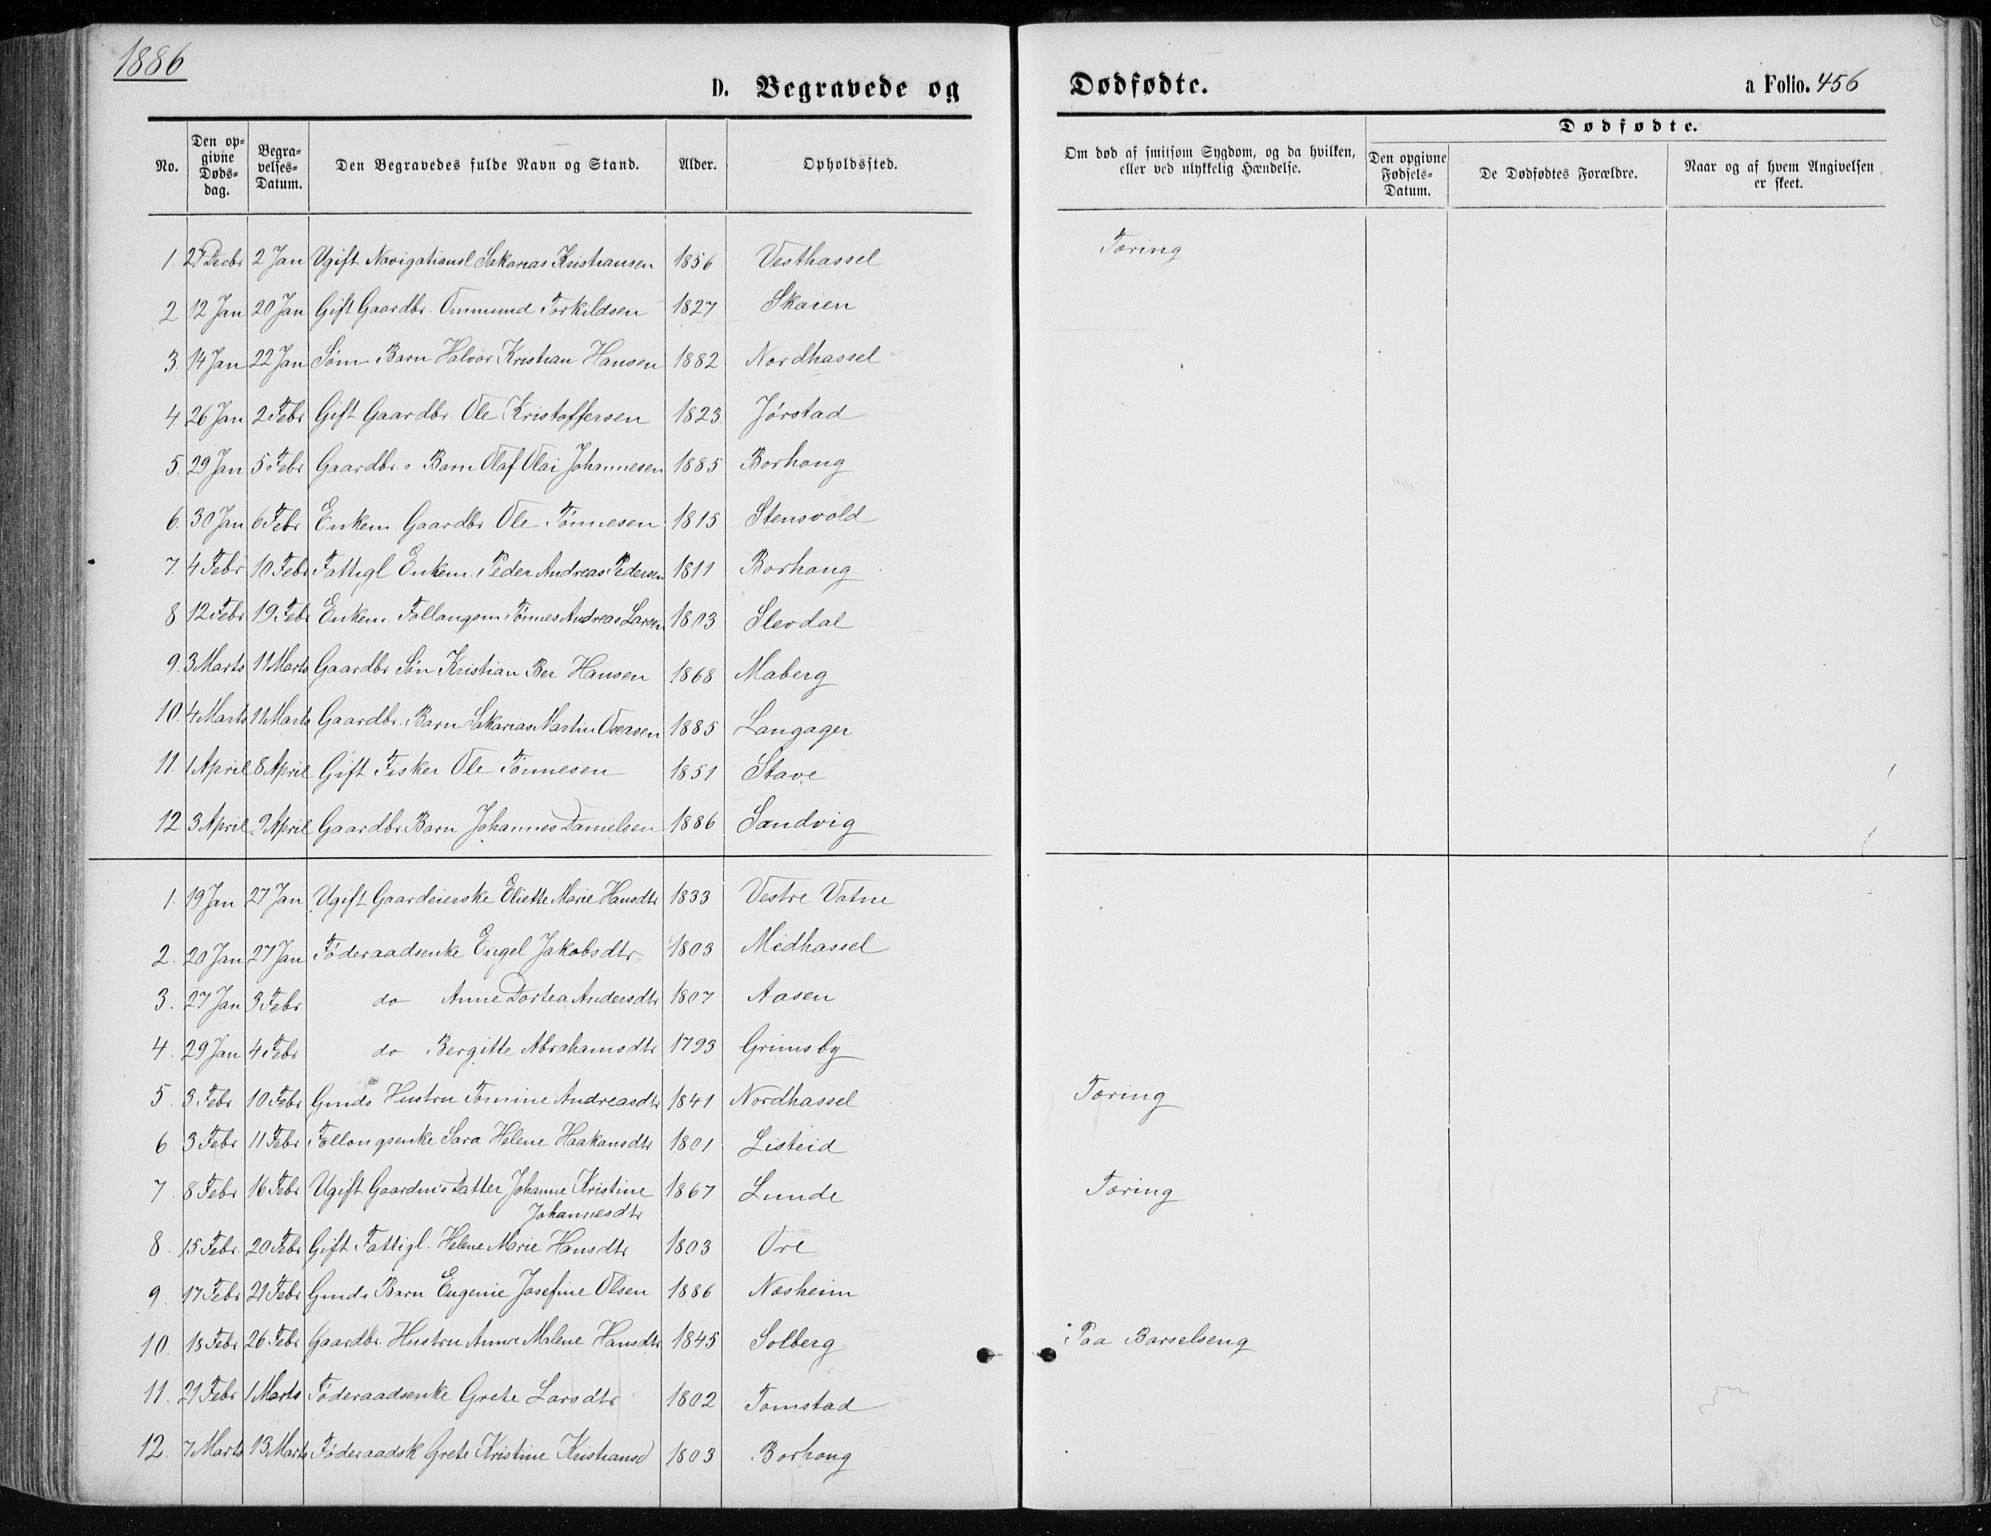 1886
D. Begravede og Dødfødte.
a Folio. 456
No. Den opgivne Døds-dag. Begravelses-Datum. Den Begravedes fulde Navn og Stand. Alder. Opholdssted. Om død af smitsom Sygdom, og da hvilken, eller ved ulykkelig Hændelse. Dødfødte. Den opgivne Fødsels-Datum. De Dødfødtes Forældre. Naar og af hvem Angivelsen er skeet.
1. 27 Decbr 2 Jan Ugift Navigationsl Sakarias Kristiansen 1856 Vesthassel Tæring
2 12 Jan 20 Jan Gift Gaardbr. Ommund Torkildsen 1827 Skaien
3. 14 Jan 22 Jan Søm Barn Halvor Kristian Hansen 1882 Nordhassel
4. 26 Jan 2 Febr Gift Gaardbr. Ole Kristoffersen 1823 Jørstad
5. 29 Jan 5 Febr Gaardbr.s Barn Olaf Olai Johannesen 1885 Borhaug
6. 30 Jan 6 Febr Enkem. Gaardbr Ole Tønnesen 1815 Stensvold
7. 4 Febr 10 Febr Fattigl Enkem. Peder Andreas Pedersen 1811 Borhaug
8 12 Febr 19 Febr Enkem. Tønnes Andreas Larsen 1803 Slevdal
9. 3 Marts 11 Marts Gaardbr Søn Kristian Ber Hansen 1868 Maberg
10. 4 Marts 11 Marts Gaardbr. Barn Sakarias Martin 1885 Langager
11. 1 April 8 April Gift Fisker Ole Tønnesen 1851 Stave
12 3 April 9 April Gaardbr Barn Johannes Danielsen 1886 Sandvig
1. 19 Jan 27 Jan Ugift Gaardeierske Eliette Marie Hansdtr 1833 Vestre Vatne
2. 20 Jan 27 Jan Føderaadsenke Engel Jakobsdtr 1803 Midhassel
3. 27 Jan 3 Febr do Anne Dortea Andersdtr 1807 Aasen
4. 29 Jan 4 Febr do Bergitte Abrahamsdtr 1793 Grimsby
5 3 Febr 10 Febr Gmds Hustru Tomine Andreasdtr 1841 Nordhassel Tæring
6. 3 Febr 11 Febr Sara Helene Haakonsdtr 1801 Listeid
7 8 Febr 16 Febr Ugift Gaardm.s Datter Johanne Kristine 1867 Lunde Tæring
Johannesdtr
8. 15 Febr. 20 Febr Gift Fattigl. Helene Marie Hansdtr 1803 Ore
9. 17 Febr 21 Febr Gmds Barn Eugenie Josefine Olsen 1886 Næsheim
10. 18 Febr 26 Febr Gaardbr. Hustru Anne Malene Hansdtr 1845 Solberg Paa Barselseng
11. 21 Febr 1 Marts Føderaadsenke Grete Larsdtr 1802 Tomstad
12. 7 Marts 13 Marts Føderaadsk Grete Kristine Kristiansd 1803 Borhaug